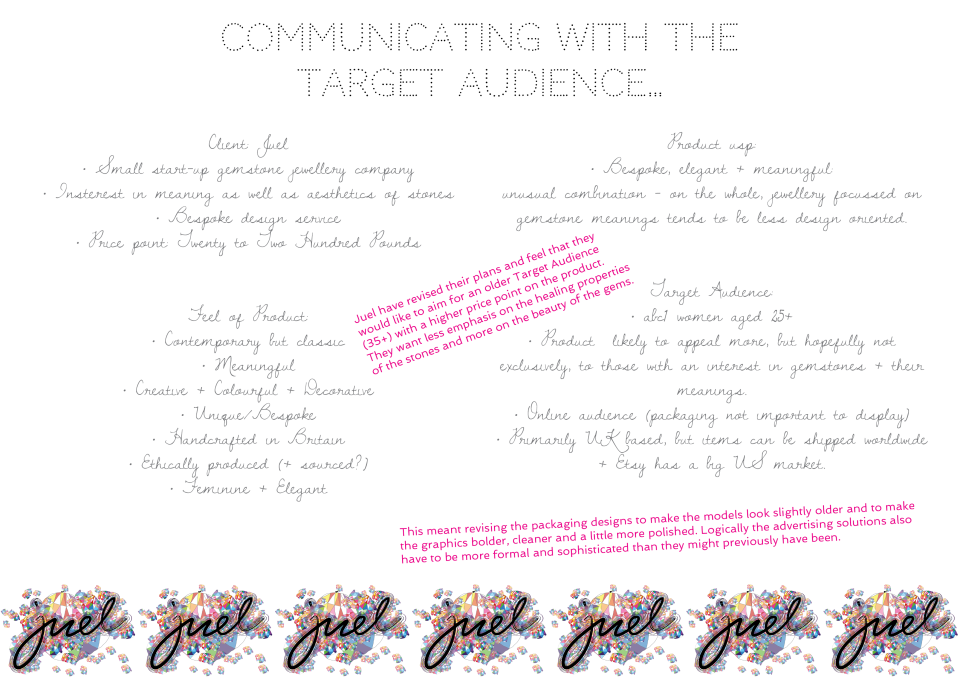 COMMUNICATING WITH THE
TARGET AUDIENCE...
Client: Juel
• Small start-up gemstone jewellery company
• Insterest in meaning as well as aesthetics of stones
• Bespoke design service
• Price point: Twenty to Two Hundred Pounds
Product usp:
• Bespoke, elegant + meaningful
unusual combination - on the whole, jewellery focussed on
gemstone meanings tends to be less design oriented.
Juel have revised their plans and feel that they
would like to aim for an older Target Audience
(35+) with a higher price point on the product.
They want less emphasis on the healing properties
of the stones and more on the beauty of the gems.
Feel of Product:
• Contemporary but classic
• Meaningful
• Creative + Colourful + Decorative
• Unique/Bespoke
• Handcrafted in Britain
• Ethically produced (+ sourced?)
• Feminine + Elegant
Target Audience:
• abc1 women aged 25+
• Product likely to appeal more, but hopefully not
exclusively, to those with an interest in gemstones + their
meanings.
• Online audience (packaging not important to display)
• Primarily UK based, but items can be shipped worldwide
+ Etsy has a big US market.
This meant revising the packaging designs to make the models look slightly older and to make
the graphics bolder, cleaner and a little more polished. Logically the advertising solutions also
have to be more formal and sophisticated than they might previously have been.
juel juel juel juel juel juel juel